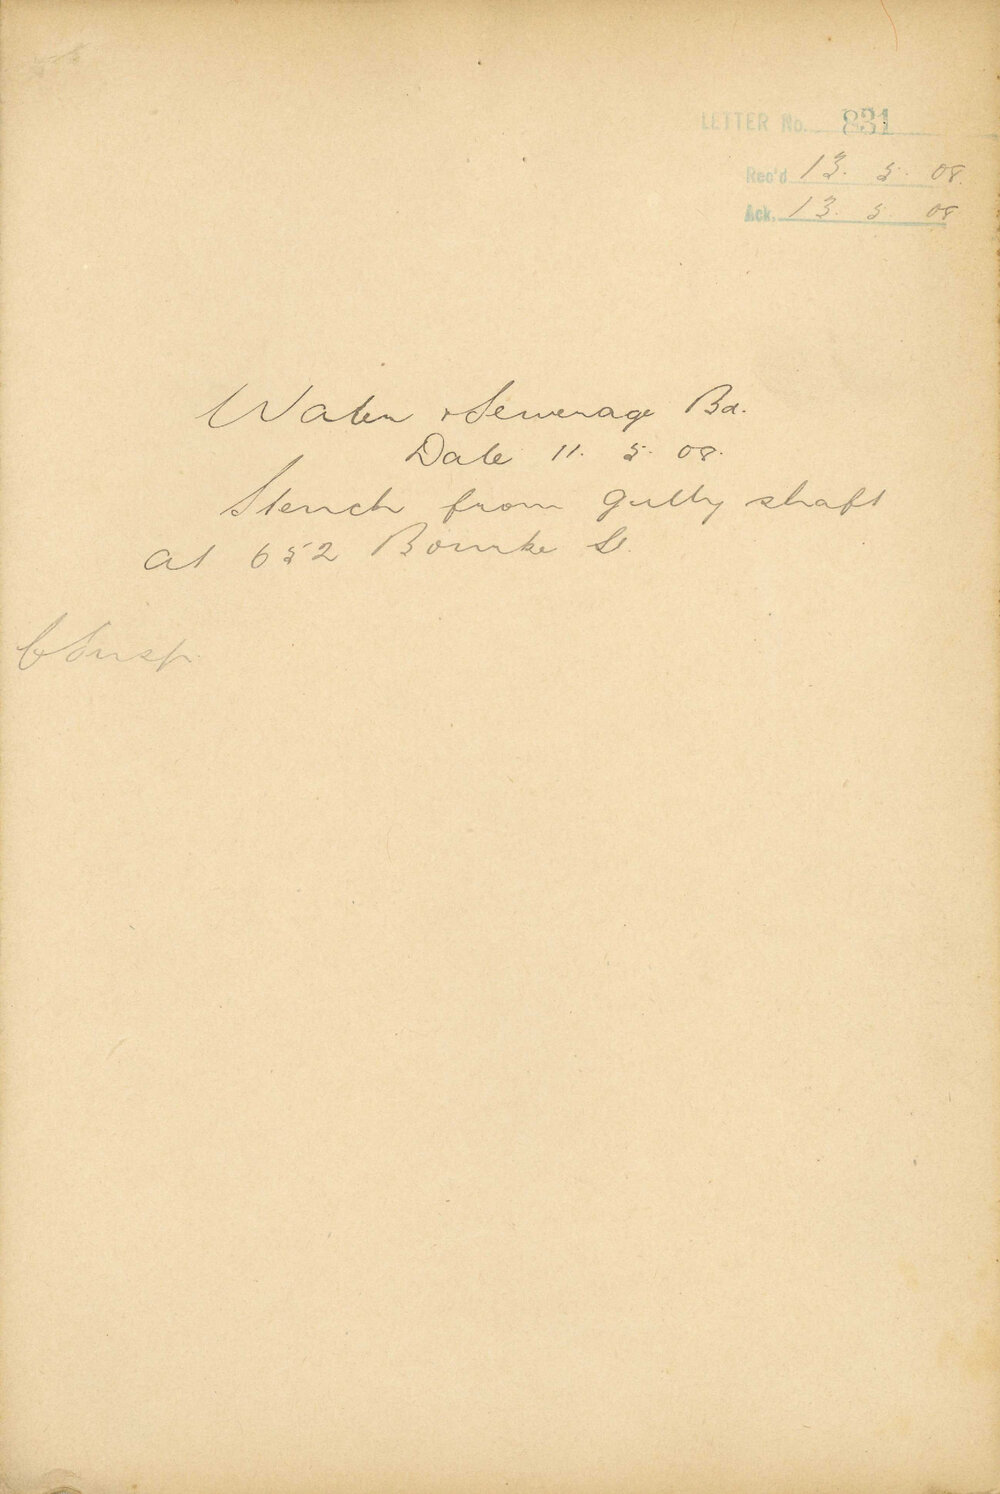 LETTER No. 831
Rec'd 13. 5. 08.
Ack. 13. 5. 08
Water & Sewerage Bd.
Date 11. 5. 08.
Stench from gully shaft
at 652 Bourke St.